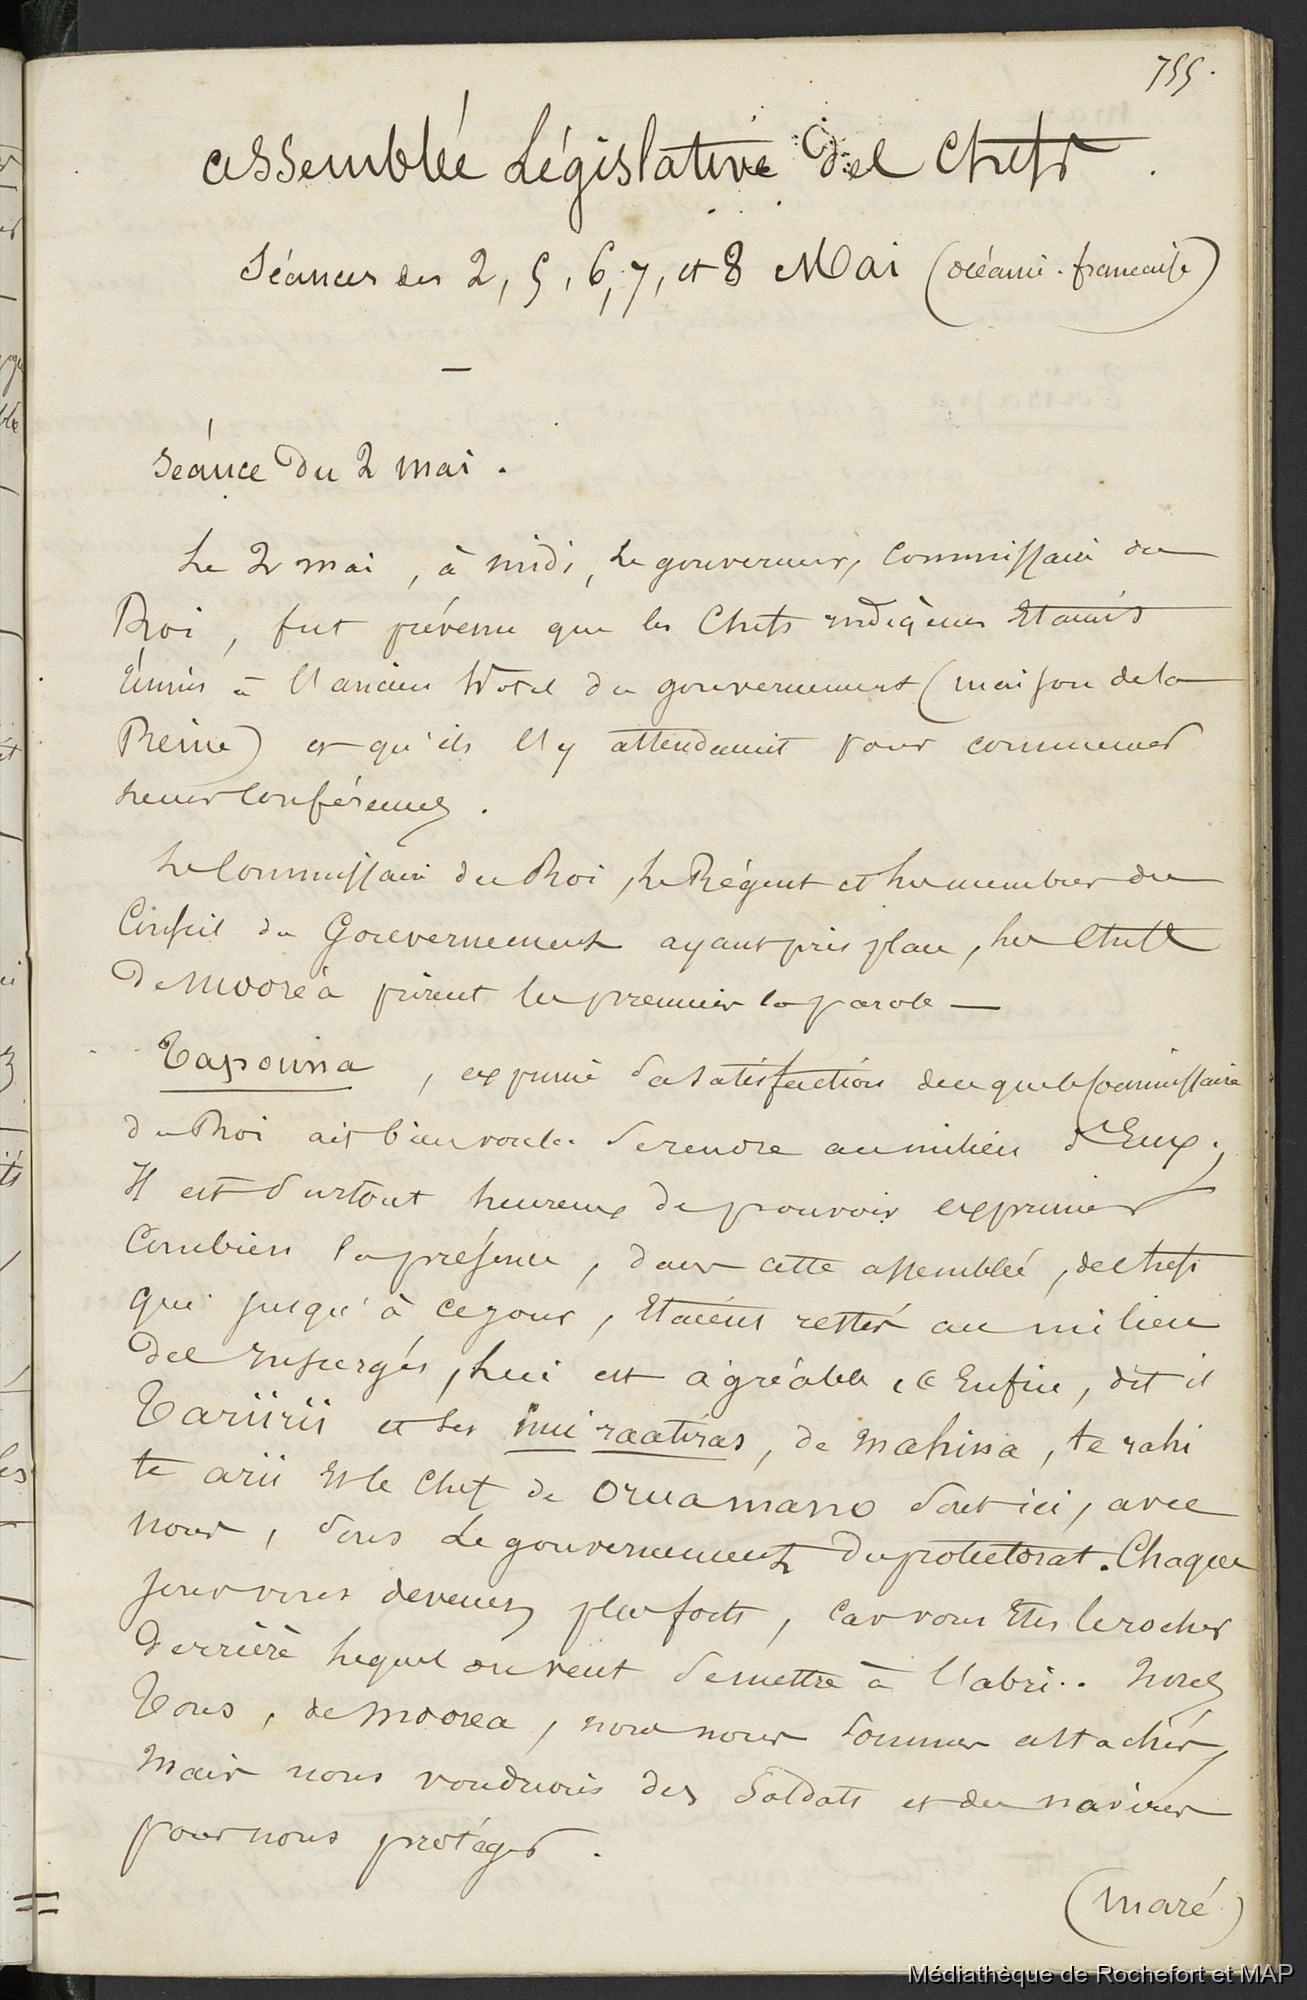 755.
Assemblée Législative des Chefs.
Séances des 2, 5, 6, 7, et 8 Mai (océanie-française)
—
Séance du 2 mai.
Le 2 mai, à midi, le gouverneur, Commissaire du
Roi, fut prévenu que les Chefs indigènes Etaient
réunis à l'ancien Hotel du gouvernement (maison de la
Reine) et qu'ils l'y attendaient pour commencer
leurs Conférences.
Le Commissaire du Roi, le Régent et les membres du
Conseil du Gouvernement ayant pris place, les Chefs
de Mooréa prirent les premiers la parole —
Tapouna, exprime sa satisfaction de ce que le Commissaire
du Roi ait bien voulu se rendre au milieu d'Eux;
Il est surtout heureux de pouvoir exprimer
Combien la présence, dans cette assemblée, de chefs
qui jusqu'à ce jour, Etaient restés au milieu
des insurgés, lui est agréable. « Enfin, dit il
Tariirii et les hui raatiras, de Mahina, te rahi
te arii Et le Chef de Oruamano sont ici, avec
nous, sous le gouvernement du protectorat. Chaque
jour vous devenez plus forts, car vous Etes le rocher
derrière lequel on veut se mettre à l'abri.. Nous
Tous, de Moorea, nous nous sommes attachés,
Mais nous voudrions des soldats et des navires
pour nous protéger.
(Maré)
Médiathèque de Rochefort et MAP